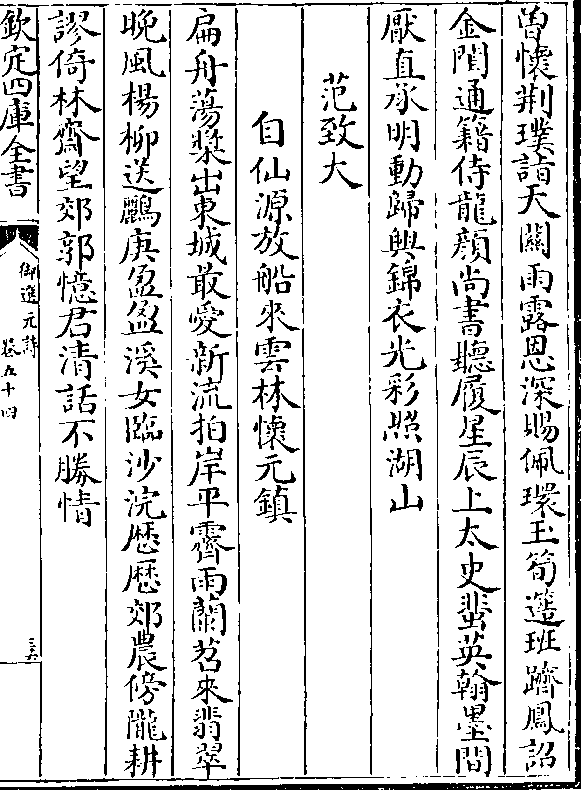 曽懐荆璞詣天闗雨露恩深賜佩環玉筍蓬班躋鳳詔
金閨通籍侍龍顔尚書聽履星辰上太史蜚英翰墨間
厭直承明動歸興錦衣光彩照湖山
范致大
自仙源放船來雲林懷元鎮
扁舟蕩槳出東城最愛新流拍岸平霽雨蘭苕來翡翠
晩風楊柳送鸝庚盈盈溪女臨沙浣歴歴郊農傍隴耕
謬倚林齋望郊郭憶君清話不勝情
欽定四庫全書
御選元詩
卷五十四
三六